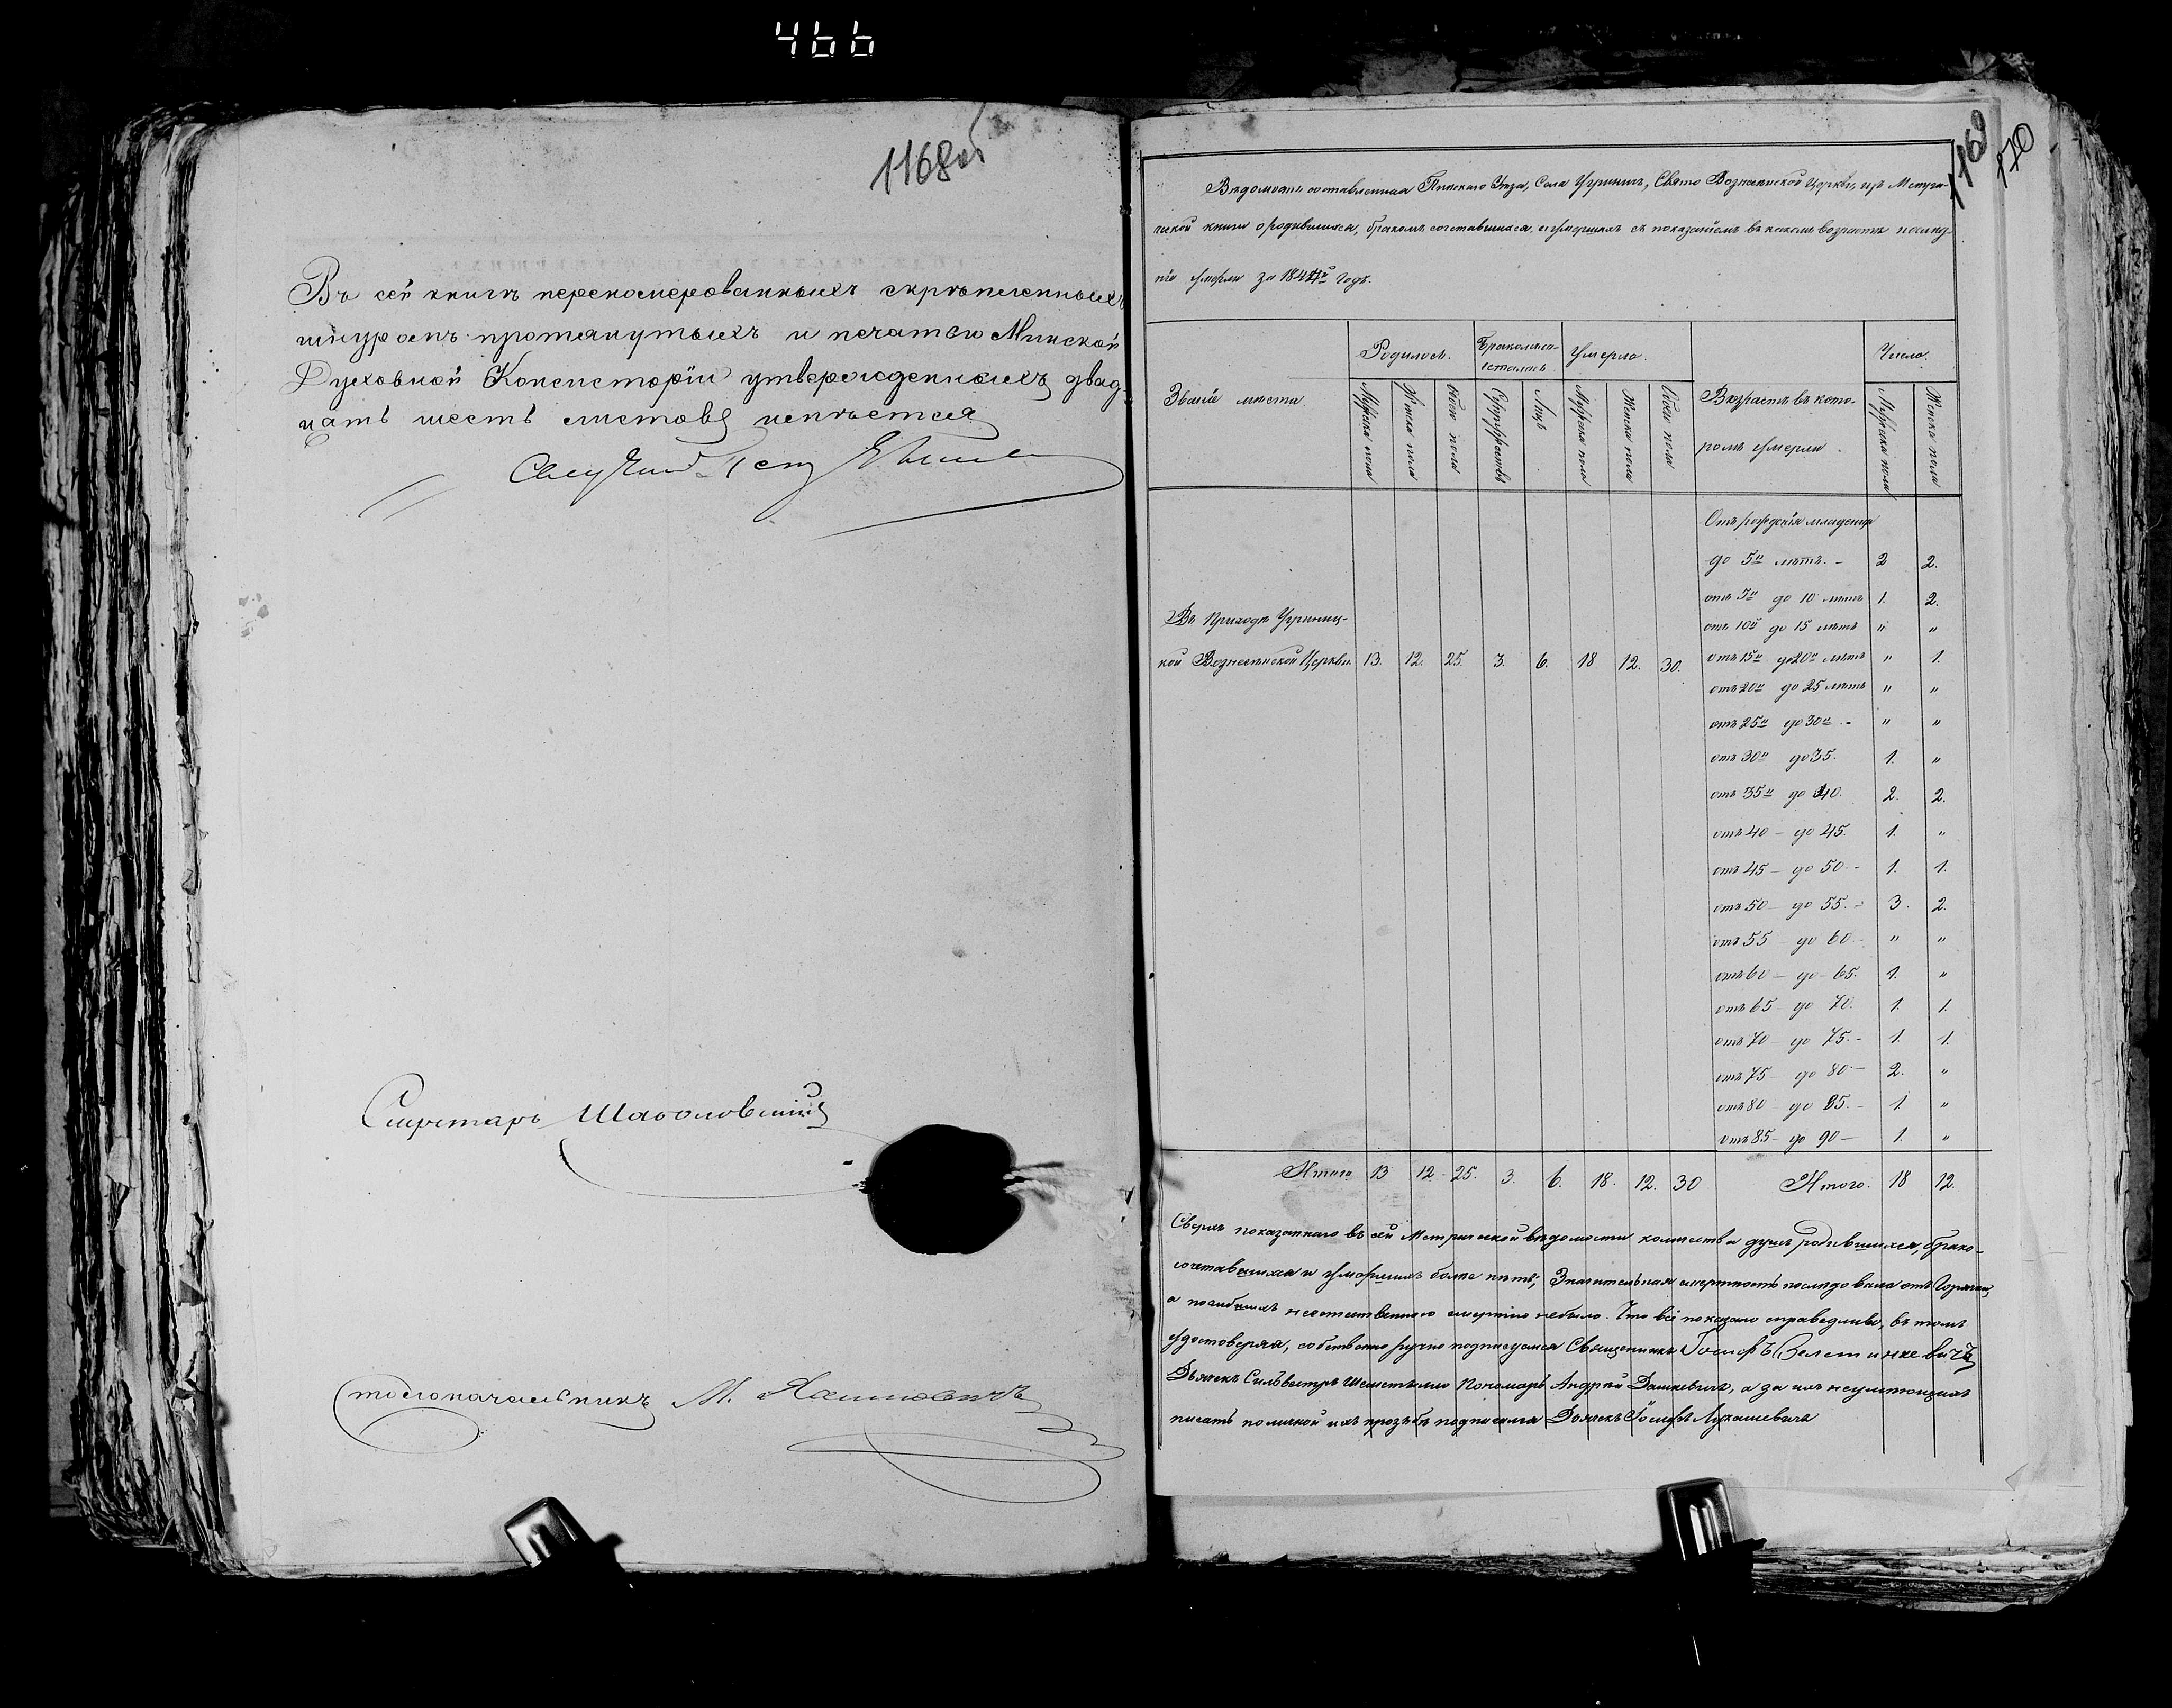 466
1168об
Въ сей книгѣ перекомерованныхъ скрѣпленныхъ
шнуромъ протянутыхъ и печатью Минской
Духовной Консисторіи утвержденныхъ двад-
цать шесть листовъ имѣется
Секретарь
Столоначальникъ М.
1169 170
Вѣдомость составленная Пинскаго Уѣзда, Села Угриничъ, Свято Вознесенской Церкви, изъ Метри-
ческой книги о родившихся, бракомъ сочетавшихся, и умершихъ съ показаніемъ въ какомъ возрастѣ послѣд-
ніе умерли за 1844й Годъ.
Званіе мѣста. Родилось. Бракомъ со- Умерло. Возрастъ въ кото- Число.
четалось ромъ умерли.
Мужеска пола Женска пола Обоего пола Супружествъ Лицъ Мужеска пола Женска пола Обоего пола Мужеска пола Женска пола
Отъ рожденія младенцы
до 5и лѣтъ. - 2 2.
отъ 5и до 10 лѣтъ 1. 2.
отъ 10и до 15 лѣтъ " "
Въ Приходѣ Угриниц-
кой Вознесенской Церкви. 13. 12. 25. 3. 6. 18 12. 30. отъ 15и до 20и лѣтъ " 1.
отъ 20и до 25 лѣтъ " "
отъ 25и до 30и - " "
отъ 30и до 35. 1. "
отъ 35и до 40. 2. 2.
отъ 40 - до 45. 1. "
отъ 45 - до 50. - 1. 1.
отъ 50 - до 55. - 3. 2.
отъ 55 до 60 - " "
отъ 60 - до 65. 1. "
отъ 65 - до 70. 1. 1.
отъ 70 до 75. - 1. 1.
отъ 75 - до 80 - 2. "
отъ 80 до 85. - 1. "
отъ 85 - до 90 - 1. "
Итого 13 12 25. 3. 6. 18. 12. 30 Итого. 18 12.
Сверхъ показаннаго въ сей Метрической вѣдомости количества душъ родившихся, брако-
сочетавшихся и умершихъ болѣе нѣтъ; Значительная смертность послѣдовала отъ Горячки,
а погибшихъ неестественною смертію небыло. Что всё показано справедливо, въ томъ
удостоверяя, собственно ручно подписуемся Священникъ Іосифъ
Дьячекъ Сильвестръ Пономарь Андрей Дашкевичъ, а за ихъ неумѣющихъ
писать по личной ихъ прозьбѣ подписался Дьячекъ Іосифъ Лукашевичъ